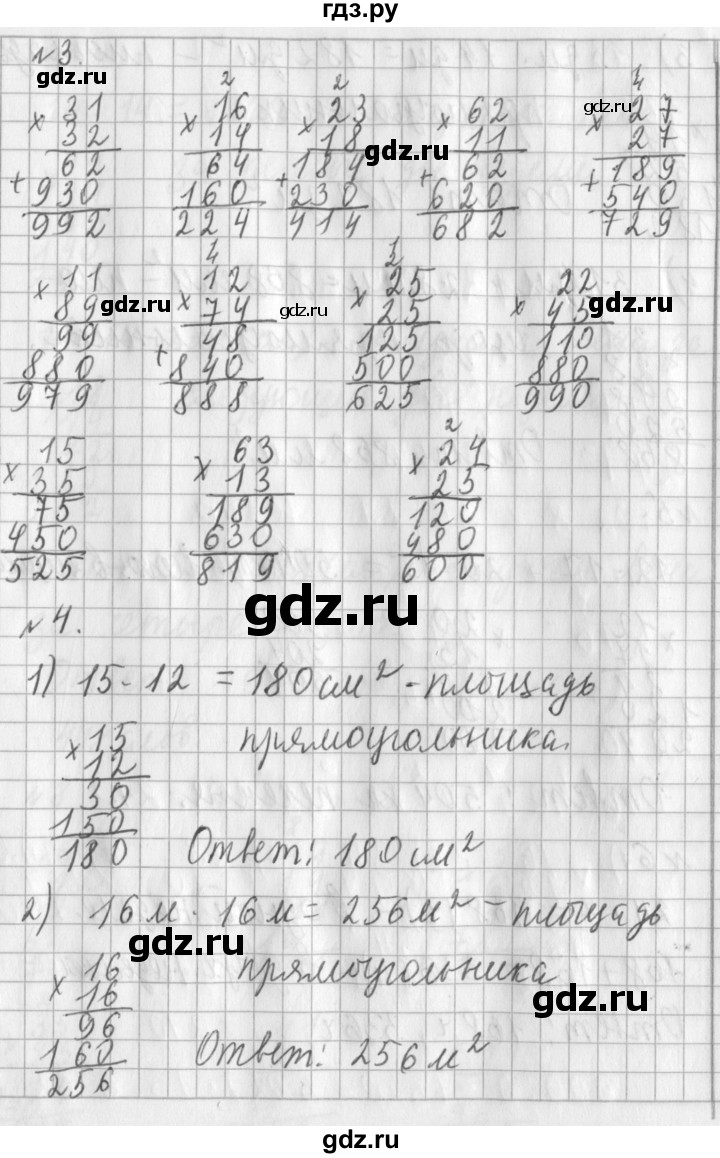 гдз.ру
№3.
gdz.ru gdz.ru
2 2 4
31 16 23 62 27
× 32 × 14 × 18 × 11 × 27
gdz.ru
62 64 184 62 189
+ 930 160 + 230 + 620 + 540
992 224 414 682 729
1 1 2
11 12 25 22
× 89 × 74 × 25 × 45
gdz.ru gdz.ru gdz.ru gdz.ru
99 48 125 110
880 + 840 500 880
979 888 625 990
2
15 63 24
× 35 × 13 × 25
75 189 120
450 630 480
525 819 600
gdz.ru
№4.
1) 15·12 = 180 см² - площадь
прямоугольника.
15
× 12
30
150
180 Ответ: 180 см²
2) 16 м · 16 м = 256 м² - площадь
gdz.ru
прямоугольника
gdz.ru
16
× 16
96
160
256 Ответ: 256 м²
gdz.ru